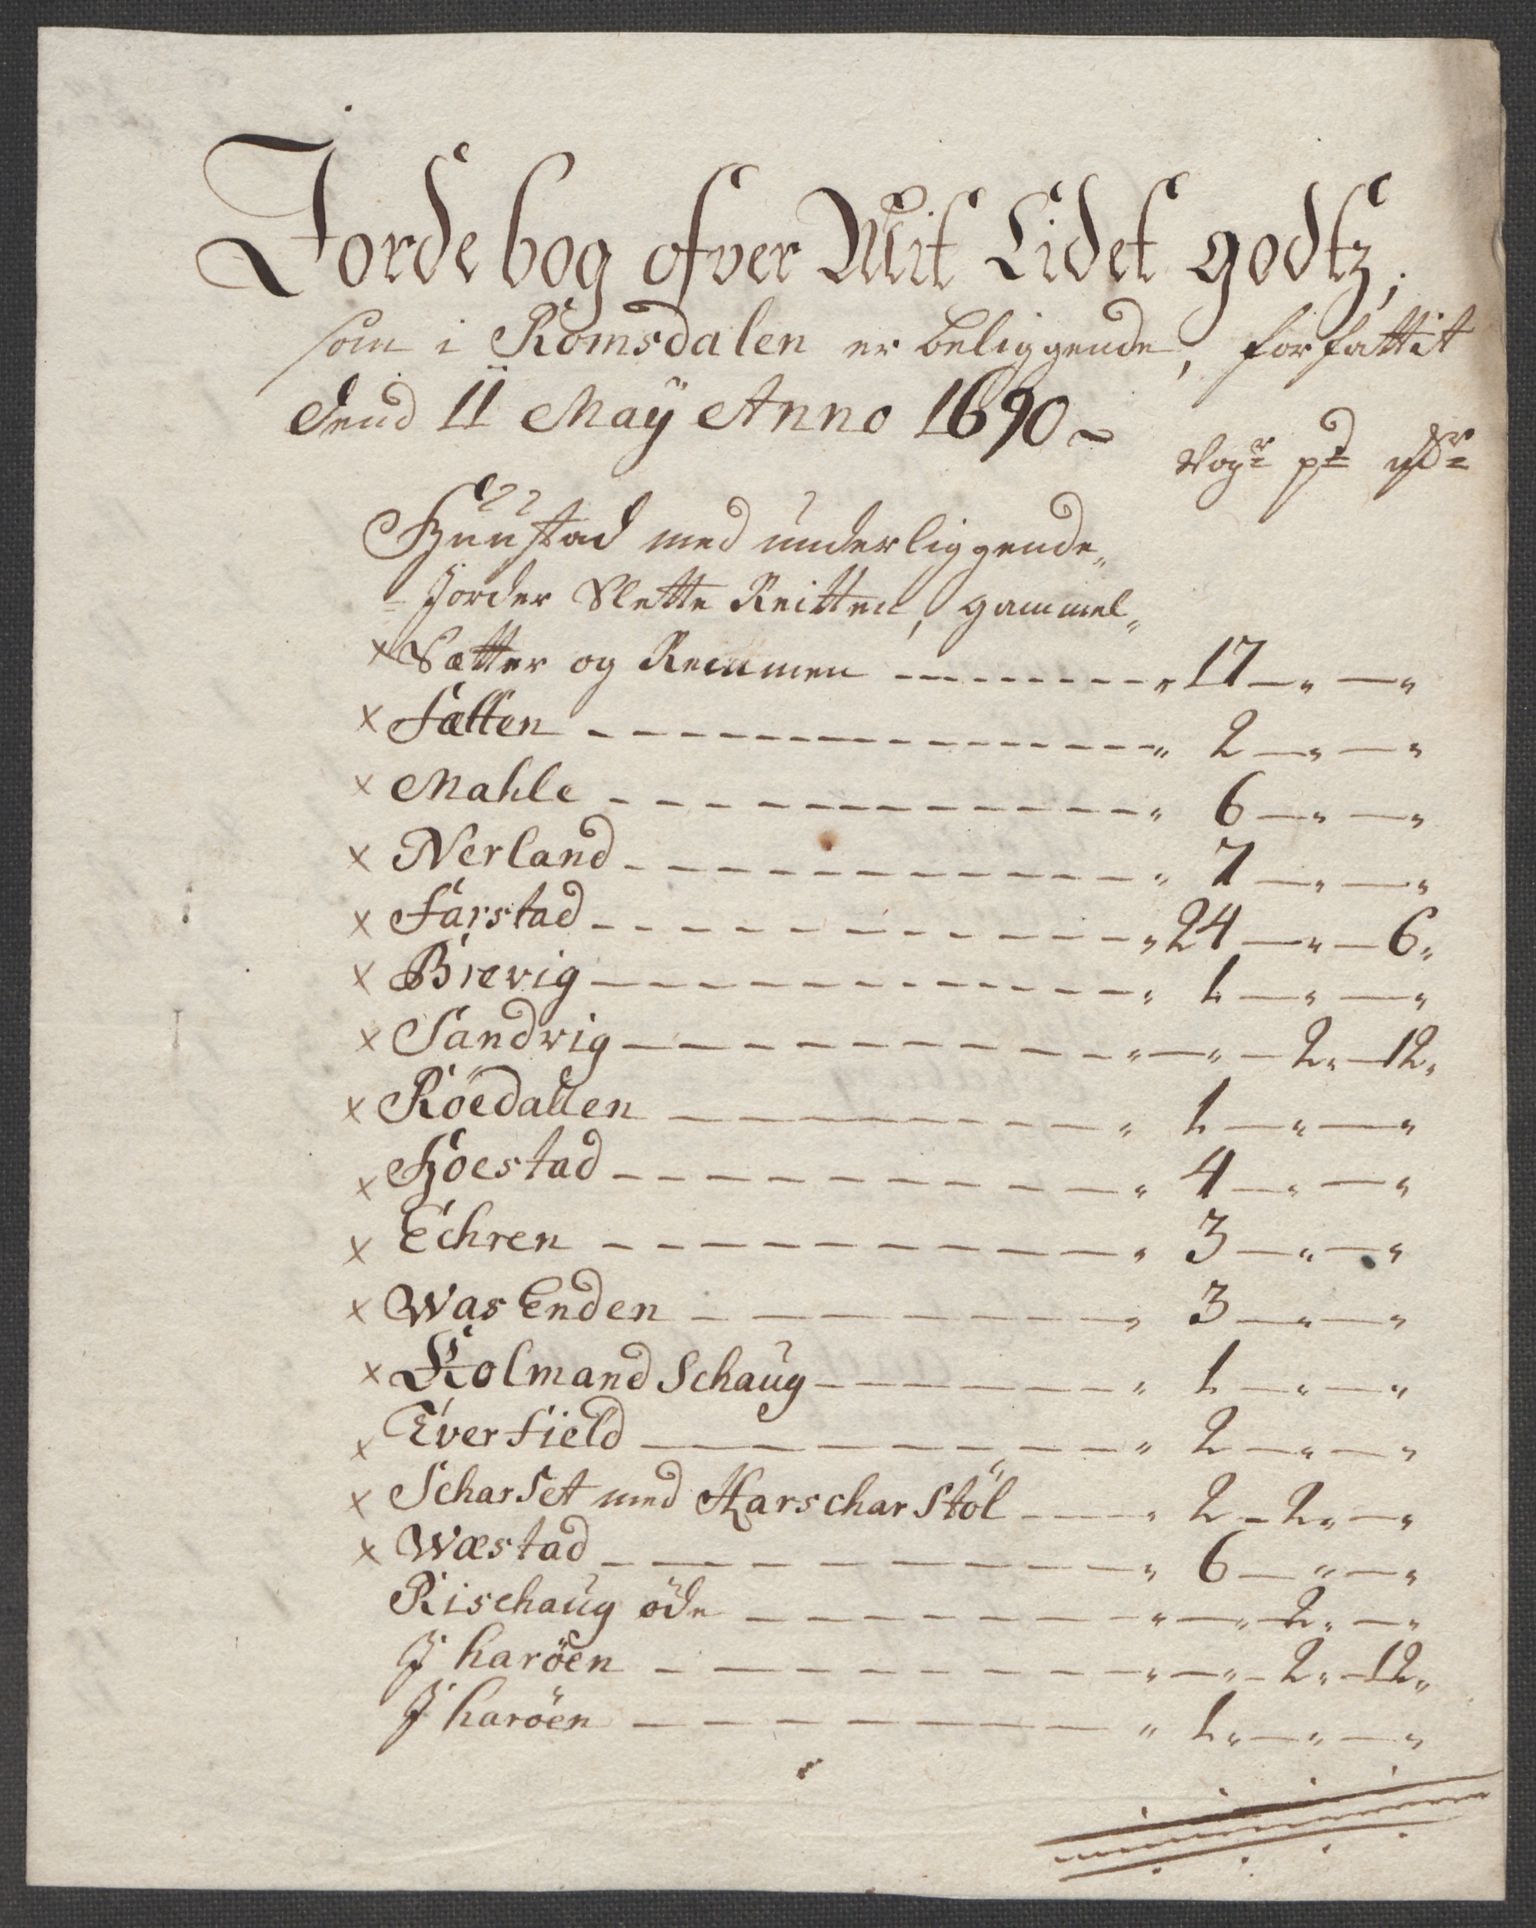 Jordebog ofver Mit Lidet godtz,
som i Romsdalen er beliggende, forfattit
dend 11 Maÿ Anno 1690 ~
Vogr pd mr
Huustad med underliggende„
Jorder Slette Reitten, gammel„
× Sætter og Remmen „ 17 — „ — „
× Fætten „ 2 — „ — „
× Mahle „ 6 — „ — „
× Nerland „ 7 — „ — „
× Farstad „ 24 — „ — 6„
× Brevig „ 1 — „ — „
× Sandvig „ — „ — 2„ — 12„
× Röedallen „ 1 — „ — „
× Hoestad „ 4 — „ — „
× Echren „ 3 — „ — „
× Was Enden „ 3 — „ — „
× Kolmand Schaug „ 1 — „ — „
× Everfield „ 2 — „ — „
× Scharset med Harscharstöl „ 2 — 2„ — „
× Wæstad „ 6 — „ — „
Rischaug öde „ — „ — 2„ — „
J haröen „ — „ — 2„ — 12„
J haröen „ 1„ — „ — „